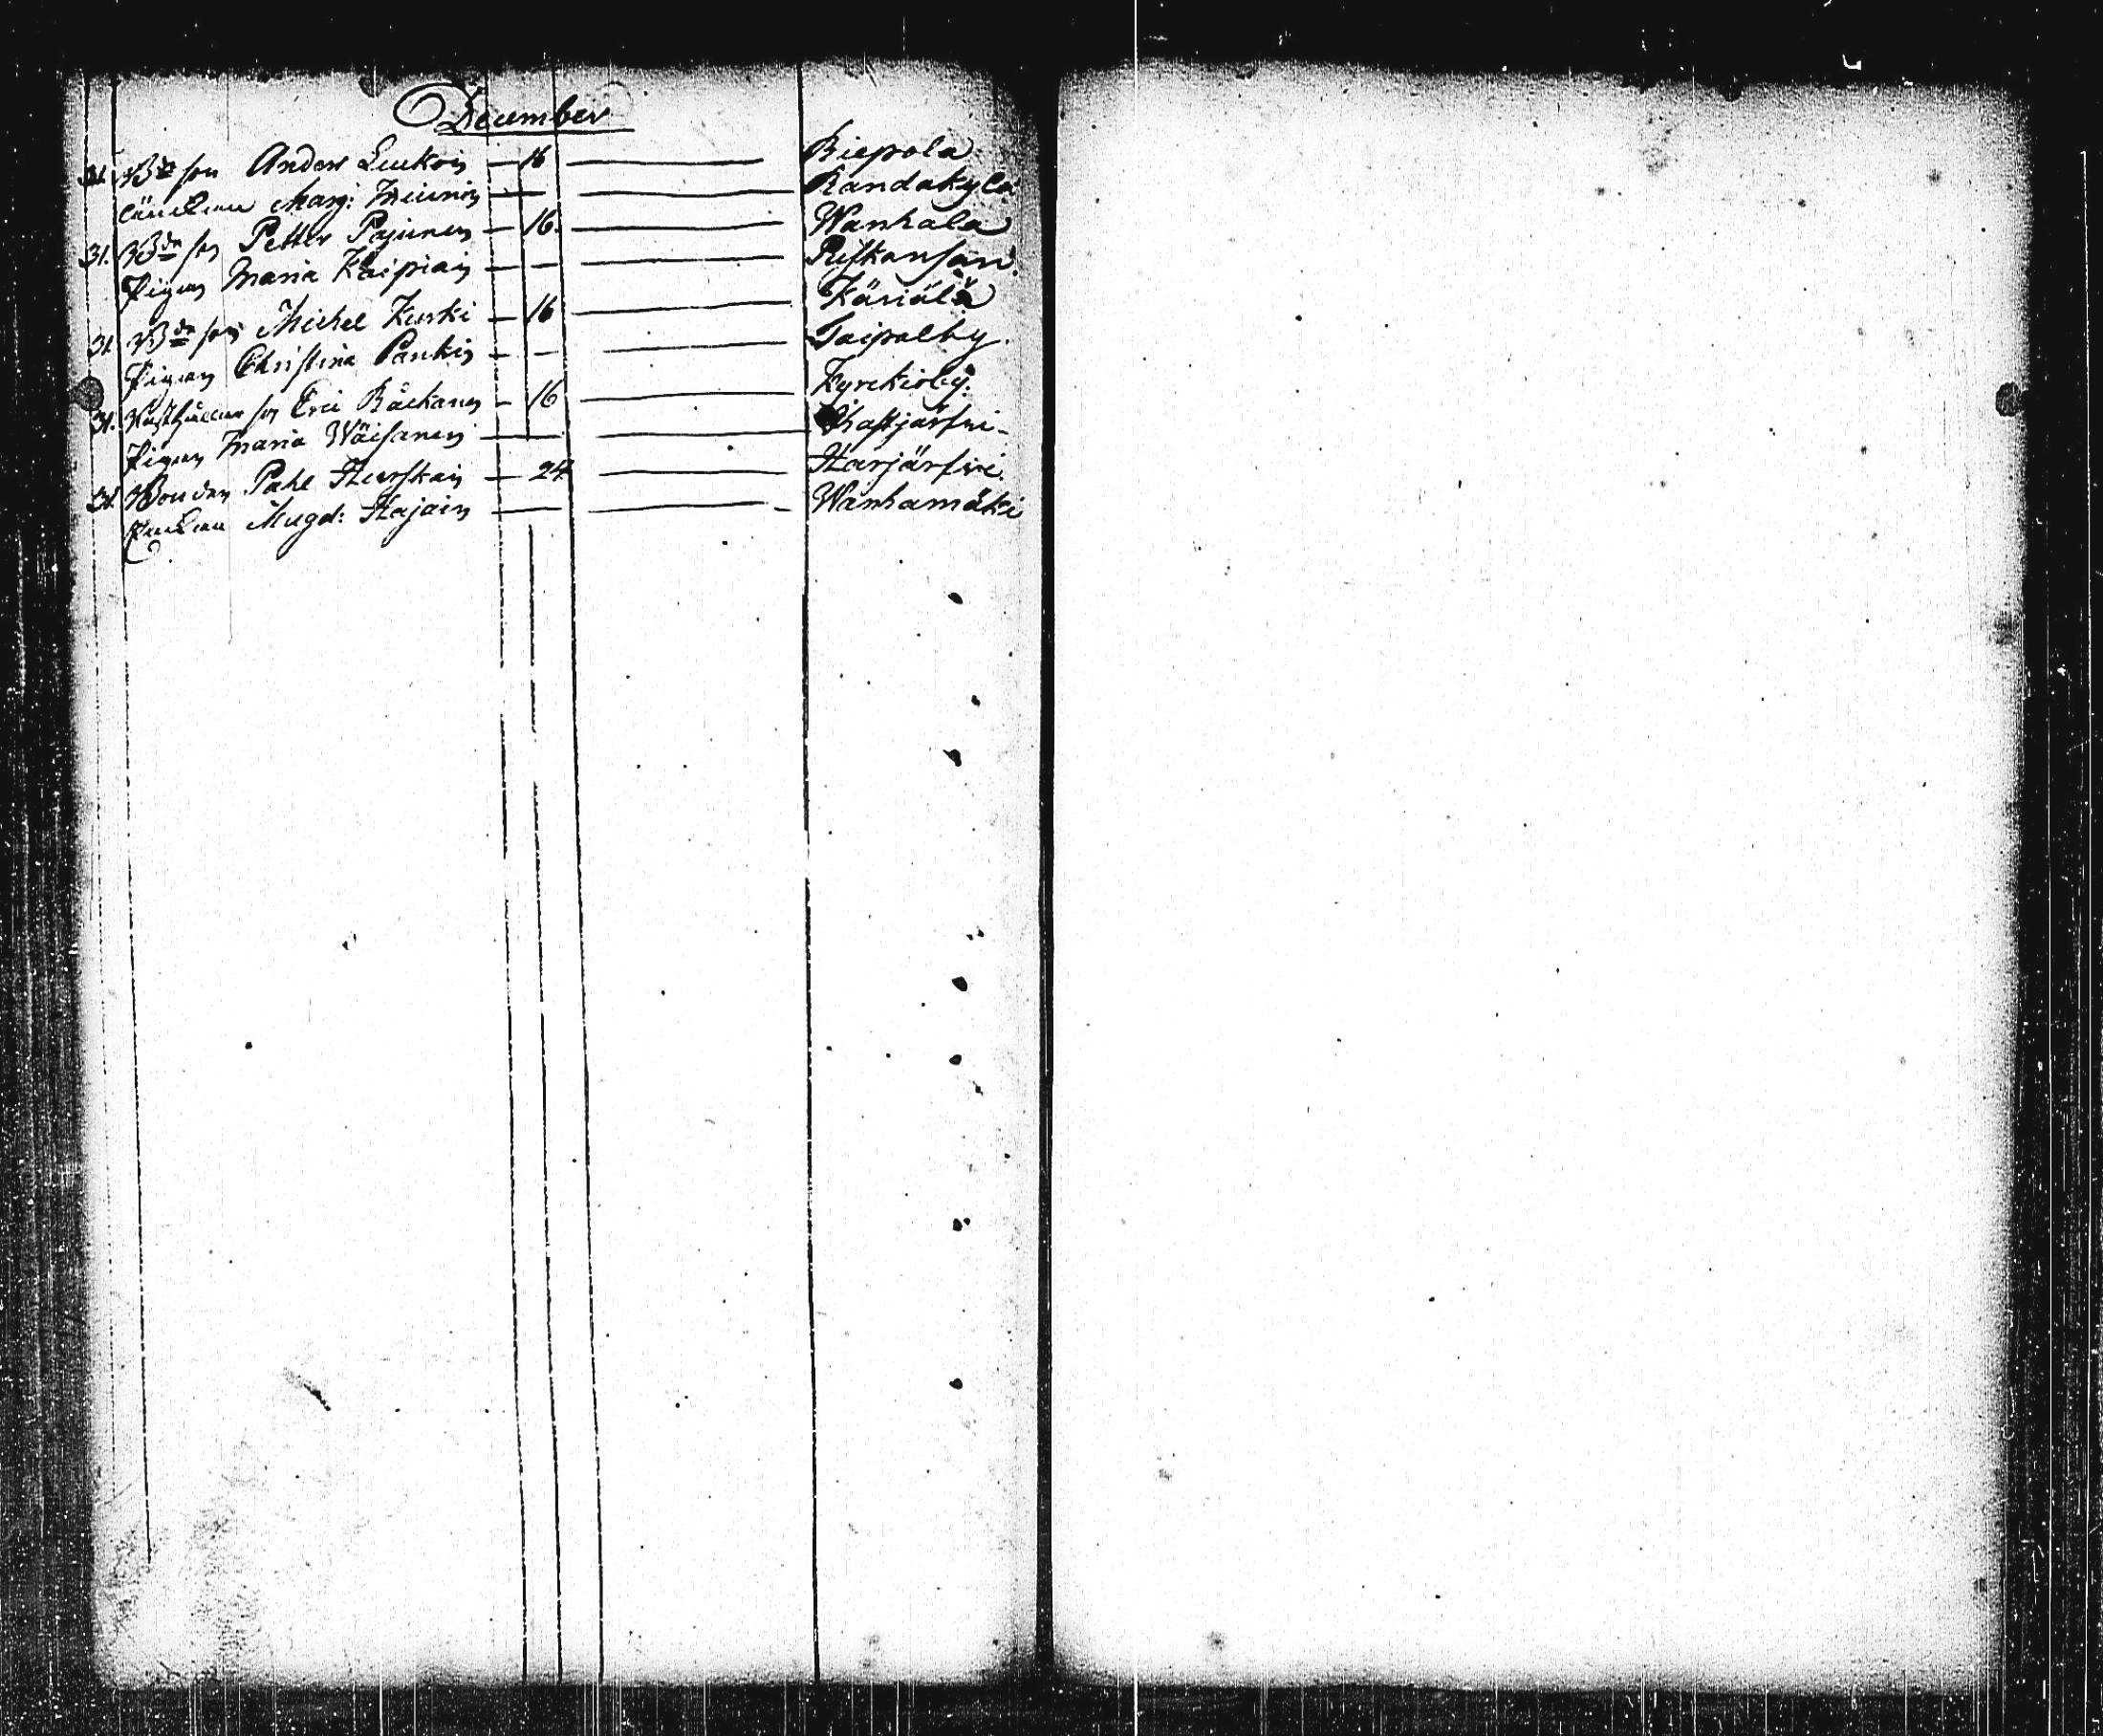 December
31. B:de son Anders Luukoin — 16 — Riepola
Enckan Marg: Miinin — — Randakylä
31. B:de son Petter Pajunen — 16. — Wanhala
Pigan Maria Kaipiain — — Pistkansari
31 B:de son Michel Kurki — 16 — Käriälä
Pigan Christina Pankin — — Taipalby.
31. son Eric Räckänen — 16 — Kyrckioby.
Pigan Maria Wäisänen — — järfwi
31. Bonden Pahl Hurskain — 24 — Harjärfwi
Enckan Magd: Hajain — — Wanhamäki